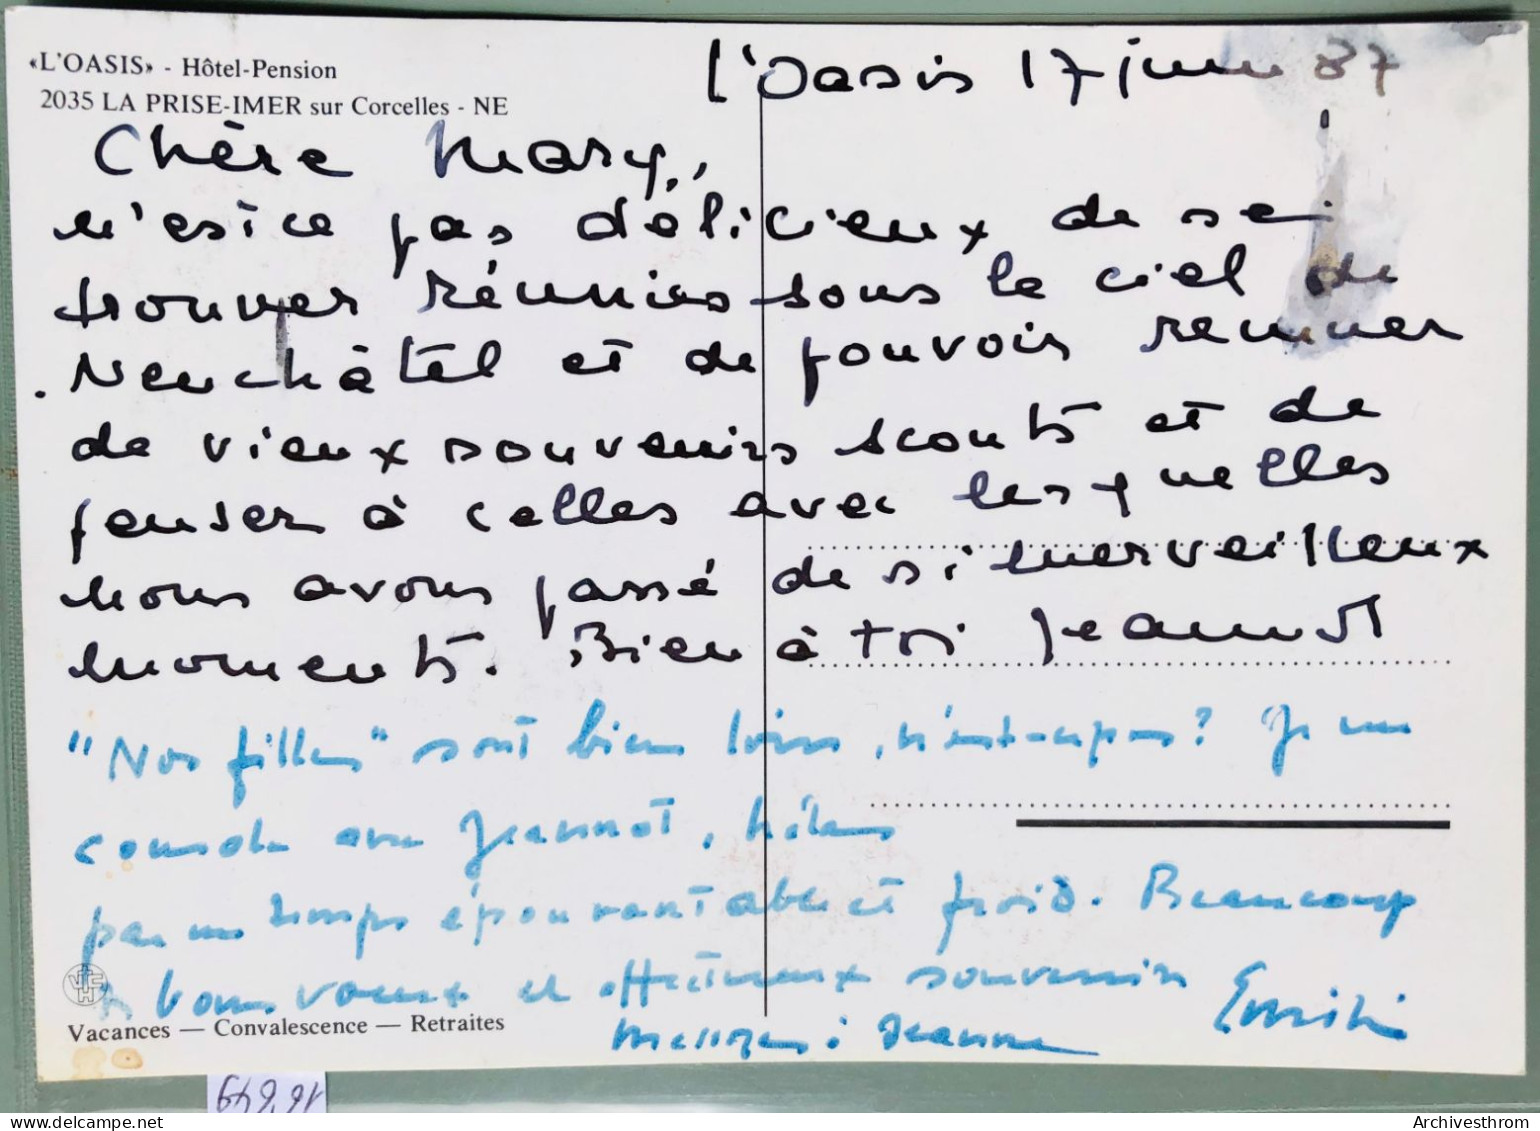 «L'OASIS» - Hôtel-Pension
2035 LA PRISE-IMER sur Corcelles - NE
L'Oasis 17 juin 87
Chère Mary,
n'est ce pas délicieux de se
trouver réunies sous le ciel de
Neuchâtel et de pouvoir remuer
de vieux souvenirs scouts et de
penser à celles avec lesquelles
nous avons passé de si merveilleux
moments. Bien à toi Jeannot
"Nos filles" sont bien loin, n'est-ce pas? Je me
console avec Jeannot, hélas
par un temps épouvantable et froid. Beaucoup
de bons voeux et affectueux souvenirs
Emilie
Messages à Jeanne
Vacances — Convalescence — Retraites
Archivesthrom
delcampe.net